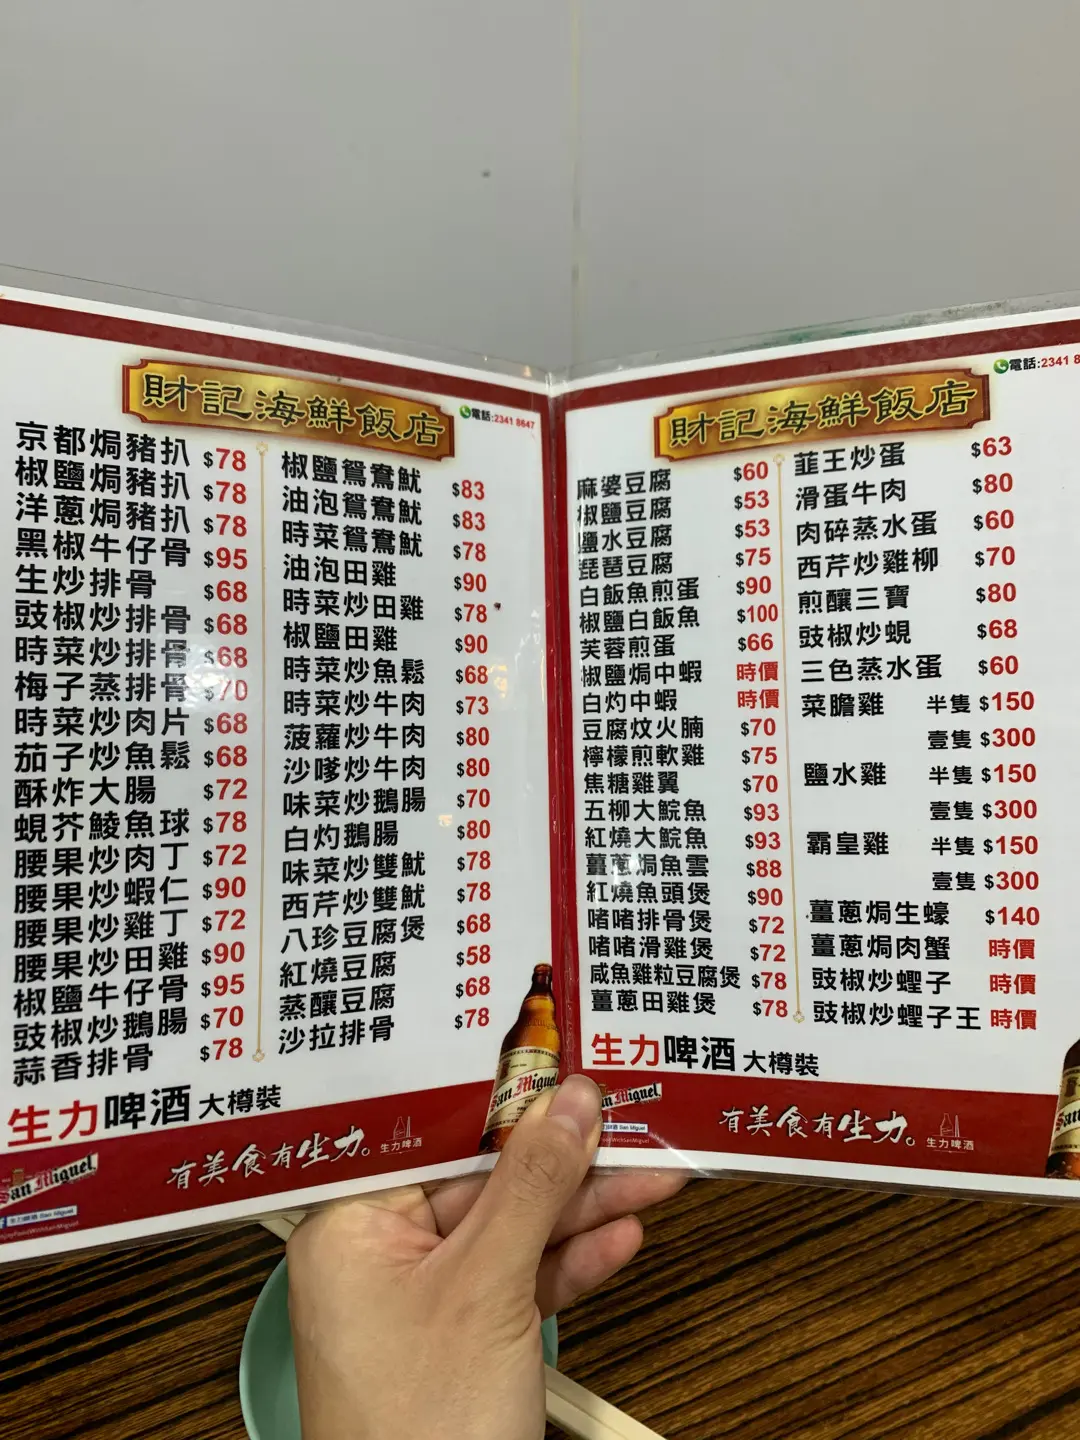 財記海鮮飯店
電話:2341 8647
京都焗豬扒 $78
椒鹽焗豬扒 $78
洋蔥焗豬扒 $78
黑椒牛仔骨 $95
生炒排骨 $68
豉椒炒排骨 $68
時菜炒排骨 $68
梅子蒸排骨 $70
時菜炒肉片 $68
茄子炒魚鬆 $68
酥炸大腸 $72
蜆芥鯪魚球 $78
腰果炒肉丁 $72
腰果炒蝦仁 $90
腰果炒雞丁 $72
腰果炒田雞 $90
椒鹽牛仔骨 $95
豉椒炒鵝腸 $70
蒜香排骨 $78
椒鹽鴛鴦魷 $83
油泡鴛鴦魷 $83
時菜鴛鴦魷 $78
油泡田雞 $90
時菜炒田雞 $78
椒鹽田雞 $90
時菜炒魚鬆 $68
時菜炒牛肉 $73
菠蘿炒牛肉 $80
沙嗲炒牛肉 $80
味菜炒鵝腸 $70
白灼鵝腸 $80
味菜炒雙魷 $78
西芹炒雙魷 $78
八珍豆腐煲 $68
紅燒豆腐 $58
蒸釀豆腐 $68
沙拉排骨 $78
生力啤酒 大樽裝
San Miguel
有美食有生力。
生力啤酒
San Miguel
生力啤酒 San Miguel
財記海鮮飯店
電話:2341 8
麻婆豆腐 $60
椒鹽豆腐 $53
鹽水豆腐 $53
琵琶豆腐 $75
白飯魚煎蛋 $90
椒鹽白飯魚 $100
芙蓉煎蛋 $66
椒鹽焗中蝦 時價
白灼中蝦 時價
豆腐炆火腩 $70
檸檬煎軟雞 $75
焦糖雞翼 $70
五柳大鯇魚 $93
紅燒大鯇魚 $93
薑蔥焗魚雲 $88
紅燒魚頭煲 $90
啫啫排骨煲 $72
啫啫滑雞煲 $72
咸魚雞粒豆腐煲 $78
薑蔥田雞煲 $78
韮王炒蛋 $63
滑蛋牛肉 $80
肉碎蒸水蛋 $60
西芹炒雞柳 $70
煎釀三寶 $80
豉椒炒蜆 $68
三色蒸水蛋 $60
菜膽雞 半隻 $150
壹隻 $300
鹽水雞 半隻 $150
壹隻 $300
霸皇雞 半隻 $150
壹隻 $300
薑蔥焗生蠔 $140
薑蔥焗肉蟹 時價
豉椒炒蟶子 時價
豉椒炒蟶子王 時價
生力啤酒 大樽裝
San Miguel
有美食有生力。
生力啤酒